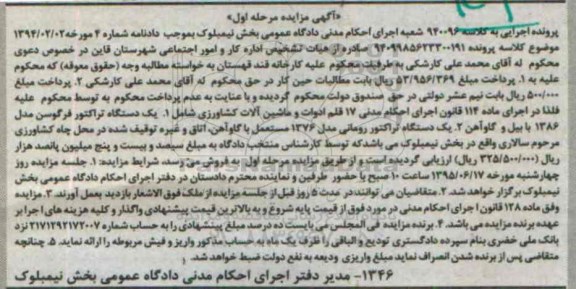 «آگهی مزایده مرحله اول»
پرونده اجرایی به کلاسه ۹۴۰۰۹۶ شعبه اجرای احکام مدنی دادگاه عمومی بخش نیمبلوک بموجب دادنامه شماره ۴ مورخه ۱۳۹۴/۰۲/۰۲
موضوع کلاسه پرونده ۹۴۰۹۹۸۵۶۲۳۳۰۰۱۹۱ صادره از هیات تشخیص اداره کار و امور اجتماعی شهرستان قاین در خصوص دعوی
محکوم له آقای محمد علی کارشکی به طرفیت محکوم علیه کارخانه قند قهستان به خواسته مطالبه وجه (حقوق معوقه) که محکوم
علیه به ۱. پرداخت مبلغ ۵۳/۹۵۶/۳۶۹ ریال بابت مطالبات حین کار در حق محکوم له آقای محمد علی کارشکی ۲. پرداخت مبلغ
۵۰۰/۰۰۰ ریال بابت نیم عشر دولتی در حق صندوق دولت محکوم گردیده و با عنایت به عدم پرداخت محکوم به توسط محکوم علیه
فلذا در اجرای ماده ۱۱۴ قانون اجرای احکام مدنی ۱۷ قلم ادوات و ماشین آلات کشاورزی شامل ۱. یک دستگاه تراکتور فرگوسن مدل
۱۳۸۶ با بیل و گاوآهن ۲. یک دستگاه تراکتور رومانی مدل ۱۳۷۶ مستعمل با گاوآهن، اتاق و غیره توقیف شده در محل چاه کشاورزی
مرحوم سالاری واقع در بخش نیمبلوک می باشد که توسط کارشناس منتخب دادگاه به مبلغ سیصد و بیست و پنج میلیون پانصد هزار
ریال (۳۲۵/۵۰۰/۰۰۰ ریال) ارزیابی گردیده است و از طریق مزایده مرحله اول به فروش می رسد، شرایط مزایده: ۱. جلسه مزایده روز
چهارشنبه مورخه ۱۳۹۵/۰۶/۱۷ ساعت ۱۰ صبح با حضور طرفین و نماینده محترم دادستان در دفتر اجرای احکام دادگاه عمومی بخش
نیمبلوک برگزار خواهد شد. ۲. متقاضیان می توانند در مدت ۵ روز قبل از جلسه مزایده از ملک فوق الاشعار بازدید بعمل آورند. ۳. مزایده
وفق ماده ۱۲۸ قانون اجرای احکام مدنی در مورد فوق از قیمت پایه شروع و به بالاترین قیمت پیشنهادی واگذار و کلیه هزینه های اجرا بر
عهده برنده مزایده می باشد. ۴. برنده مزایده فی المجلس می بایست ده درصد مبلغ پیشنهادی را به حساب شماره ۲۱۷۱۲۹۲۱۷۲۰۰۷ نزد
بانک ملی خضری بنام سپرده دادگستری تودیع و الباقی را ظرف یک ماه به حساب مذکور واریز و فیش مربوطه را ارائه نماید. ۵. چنانچه
متقاضی پس از برنده شدن انصراف نماید مبلغ واریزی ودیعه به نفع دولت ضبط خواهد شد.
۱۳۴۶- مدیر دفتر اجرای احکام مدنی دادگاه عمومی بخش نیمبلوک